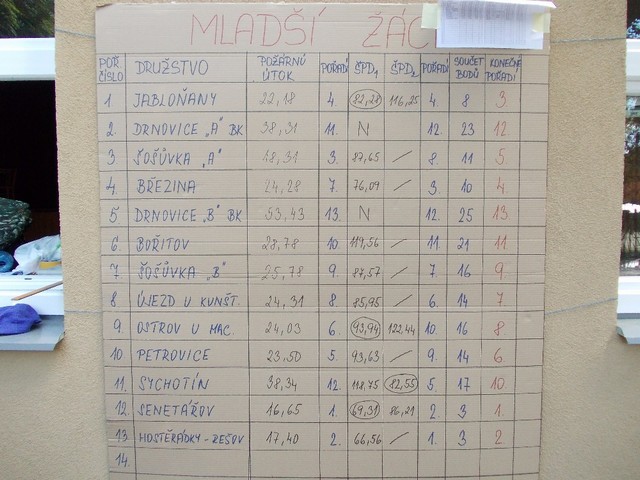 MLADŠÍ ŽÁC
POŘ. ČÍSLO DRUŽSTVO POŽÁRNÍ ÚTOK POŘADÍ ŠPD1 ŠPD2 POŘADÍ SOUČET BODŮ KONEČNÉ POŘADÍ
1 JABLOŇANY 22,18 4. 82,28 116,25 4 8 3
2. DRNOVICE "A" BK 38,31 11. N 12. 23 12
3 ŠOŠŮVKA "A" 18,31 3. 87,65 / 8. 11 5
4 BŘEZINA 24,28 7. 76,09 / 3. 10 4
5 DRNOVICE "B" BK 53,43 13. N 12. 25 13
6. BOŘITOV 28,78 10. 119,56 / 11. 21 11
7 ŠOŠŮVKA "B" 25,78 9. 87,57 / 7. 16 9
8 ÚJEZD U KUNŠT. 24,31 8 85,95 / 6. 14 7
9. OSTROV U MAC. 24,03 6. 93,94 122,44 10. 16 8
10 PETROVICE 23,50 5. 93,63 / 9. 14 6
11. SYCHOTÍN 38,34 12. 118,75 82,55 5. 17 10
12. SENETÁŘOV 16,65 1. 69,31 86,21 2. 3 1
13. HOSTĚRÁDKY-REŠOV 17,40 2. 66,56 / 1. 3 2
14.